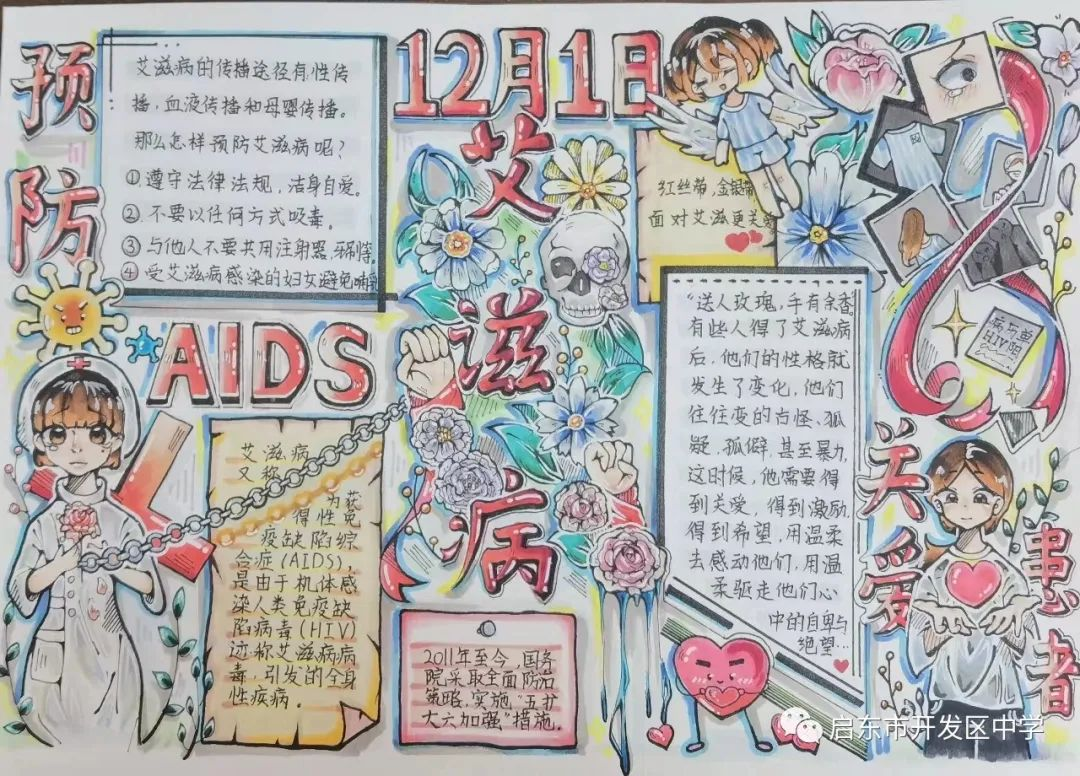 预防
艾滋病的传播途径有性传
播，血液传播和母婴传播。
那么怎样预防艾滋病呢？
①遵守法律法规，洁身自爱。
②不要以任何方式吸毒。
③与他人不要共用注射器,牙刷等
④受艾滋病感染的妇女避免哺乳
12月1日
艾滋病
红丝带,金银带
面对艾滋更关爱
AIDS
艾滋病
又称
为获
得性免
疫缺陷综
合症(AIDS),
是由于机体感
染人类免疫缺
陷病毒(HIV)
亦称艾滋病病
毒,引发的全身
性疾病。
2011年至今,国务
院采取全面防治
策略,实施"五扩
大六加强"措施.
"送人玫瑰,手有余香。
有些人得了艾滋病
后,他们的性格就
发生了变化,他们
往往变的古怪、孤
疑、孤僻,甚至暴力,
这时候,他需要得
到关爱,得到激励,
得到希望,用温柔
去感动他们,用温
柔驱走他们心
中的自卑与
绝望...
HIV阳
关爱
患者
启东市开发区中学